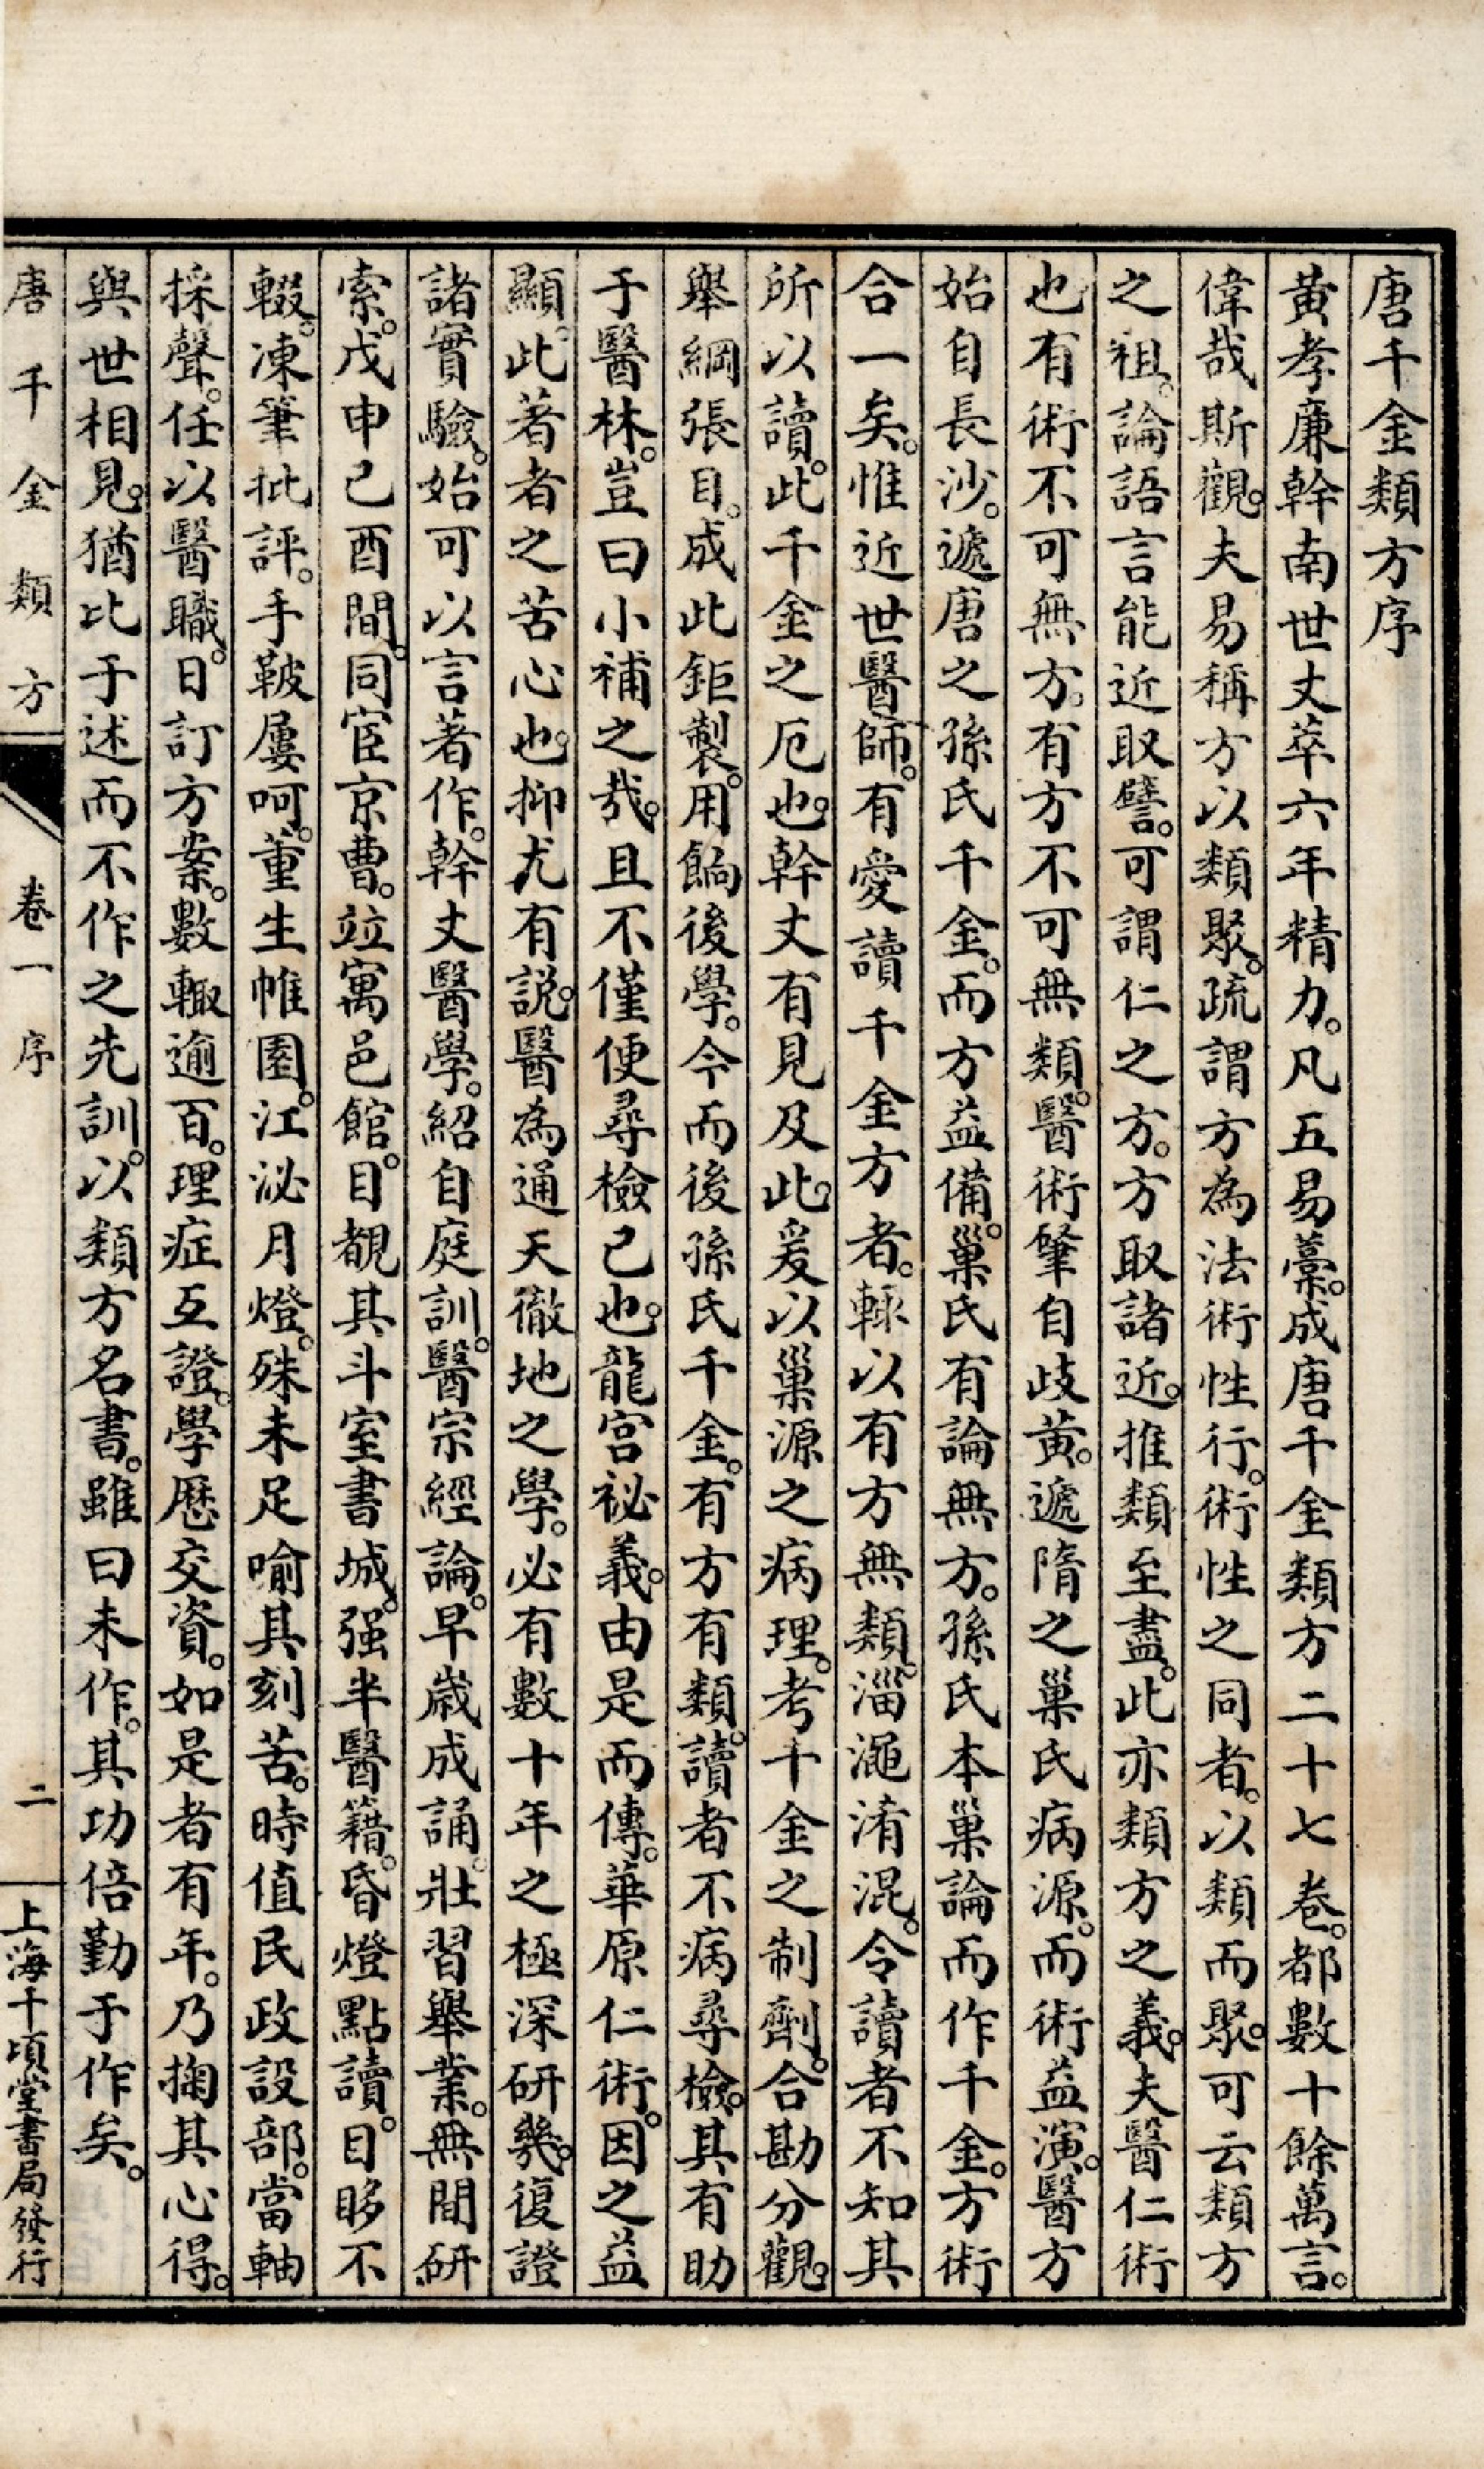 唐千金類方序
黃孝廉幹南世丈萃六年精力。凡五易藁。成唐千金類方二十七卷。都數十餘萬言。
偉哉斯觀。夫易稱方以類聚。疏謂方為法術性行。術性之同者。以類而聚。可云類方
之祖。論語言能近取譬。可謂仁之方。方取諸近。推類至盡。此亦類方之義。夫醫仁術
也有術不可無方。有方不可無類。醫術肇自歧黃。遞隋之巢氏病源。而術益演。醫方
始自長沙。遞唐之孫氏千金。而方益備。巢氏有論無方。孫氏本巢論而作千金。方術
合一矣。惟近世醫師。有愛讀千金方者。輒以有方無類。淄澠淆混。令讀者不知其
所以讀。此千金之厄也。幹丈有見及此。爰以巢源之病理。考千金之制劑。合勘分觀。
舉綱張目。成此鉅製。用餉後學。今而後孫氏千金。有方有類。讀者不病尋檢。其有助
于醫林。豈曰小補之哉。且不僅便尋檢已也。龍宮祕義。由是而傳。華原仁術。因之益
顯。此著者之苦心也。抑尤有説。醫為通天徹地之學。必有數十年之極深研幾。復證
諸實驗。始可以言著作。幹丈醫學。紹自庭訓。醫宗經論。早歲成誦。壯習舉業。無間研
索。戊申己酉間。同宦京曹。竝寓邑館。目覩其斗室書城。强半醫籍。昏燈點讀。目眵不
輟。凍筆批評。手鞍屢呵。董生帷園。江泌月燈。殊未足喻其刻苦。時值民政設部。當軸
採聲。任以醫職。日訂方案。數輒逾百。理症互證。學歷交資。如是者有年。乃掬其心得。
與世相見。猶比于述而不作之先訓。以類方名書。雖曰未作。其功倍勤于作矣。
唐千金類方 卷一 序 二 上海千頃堂書局發行